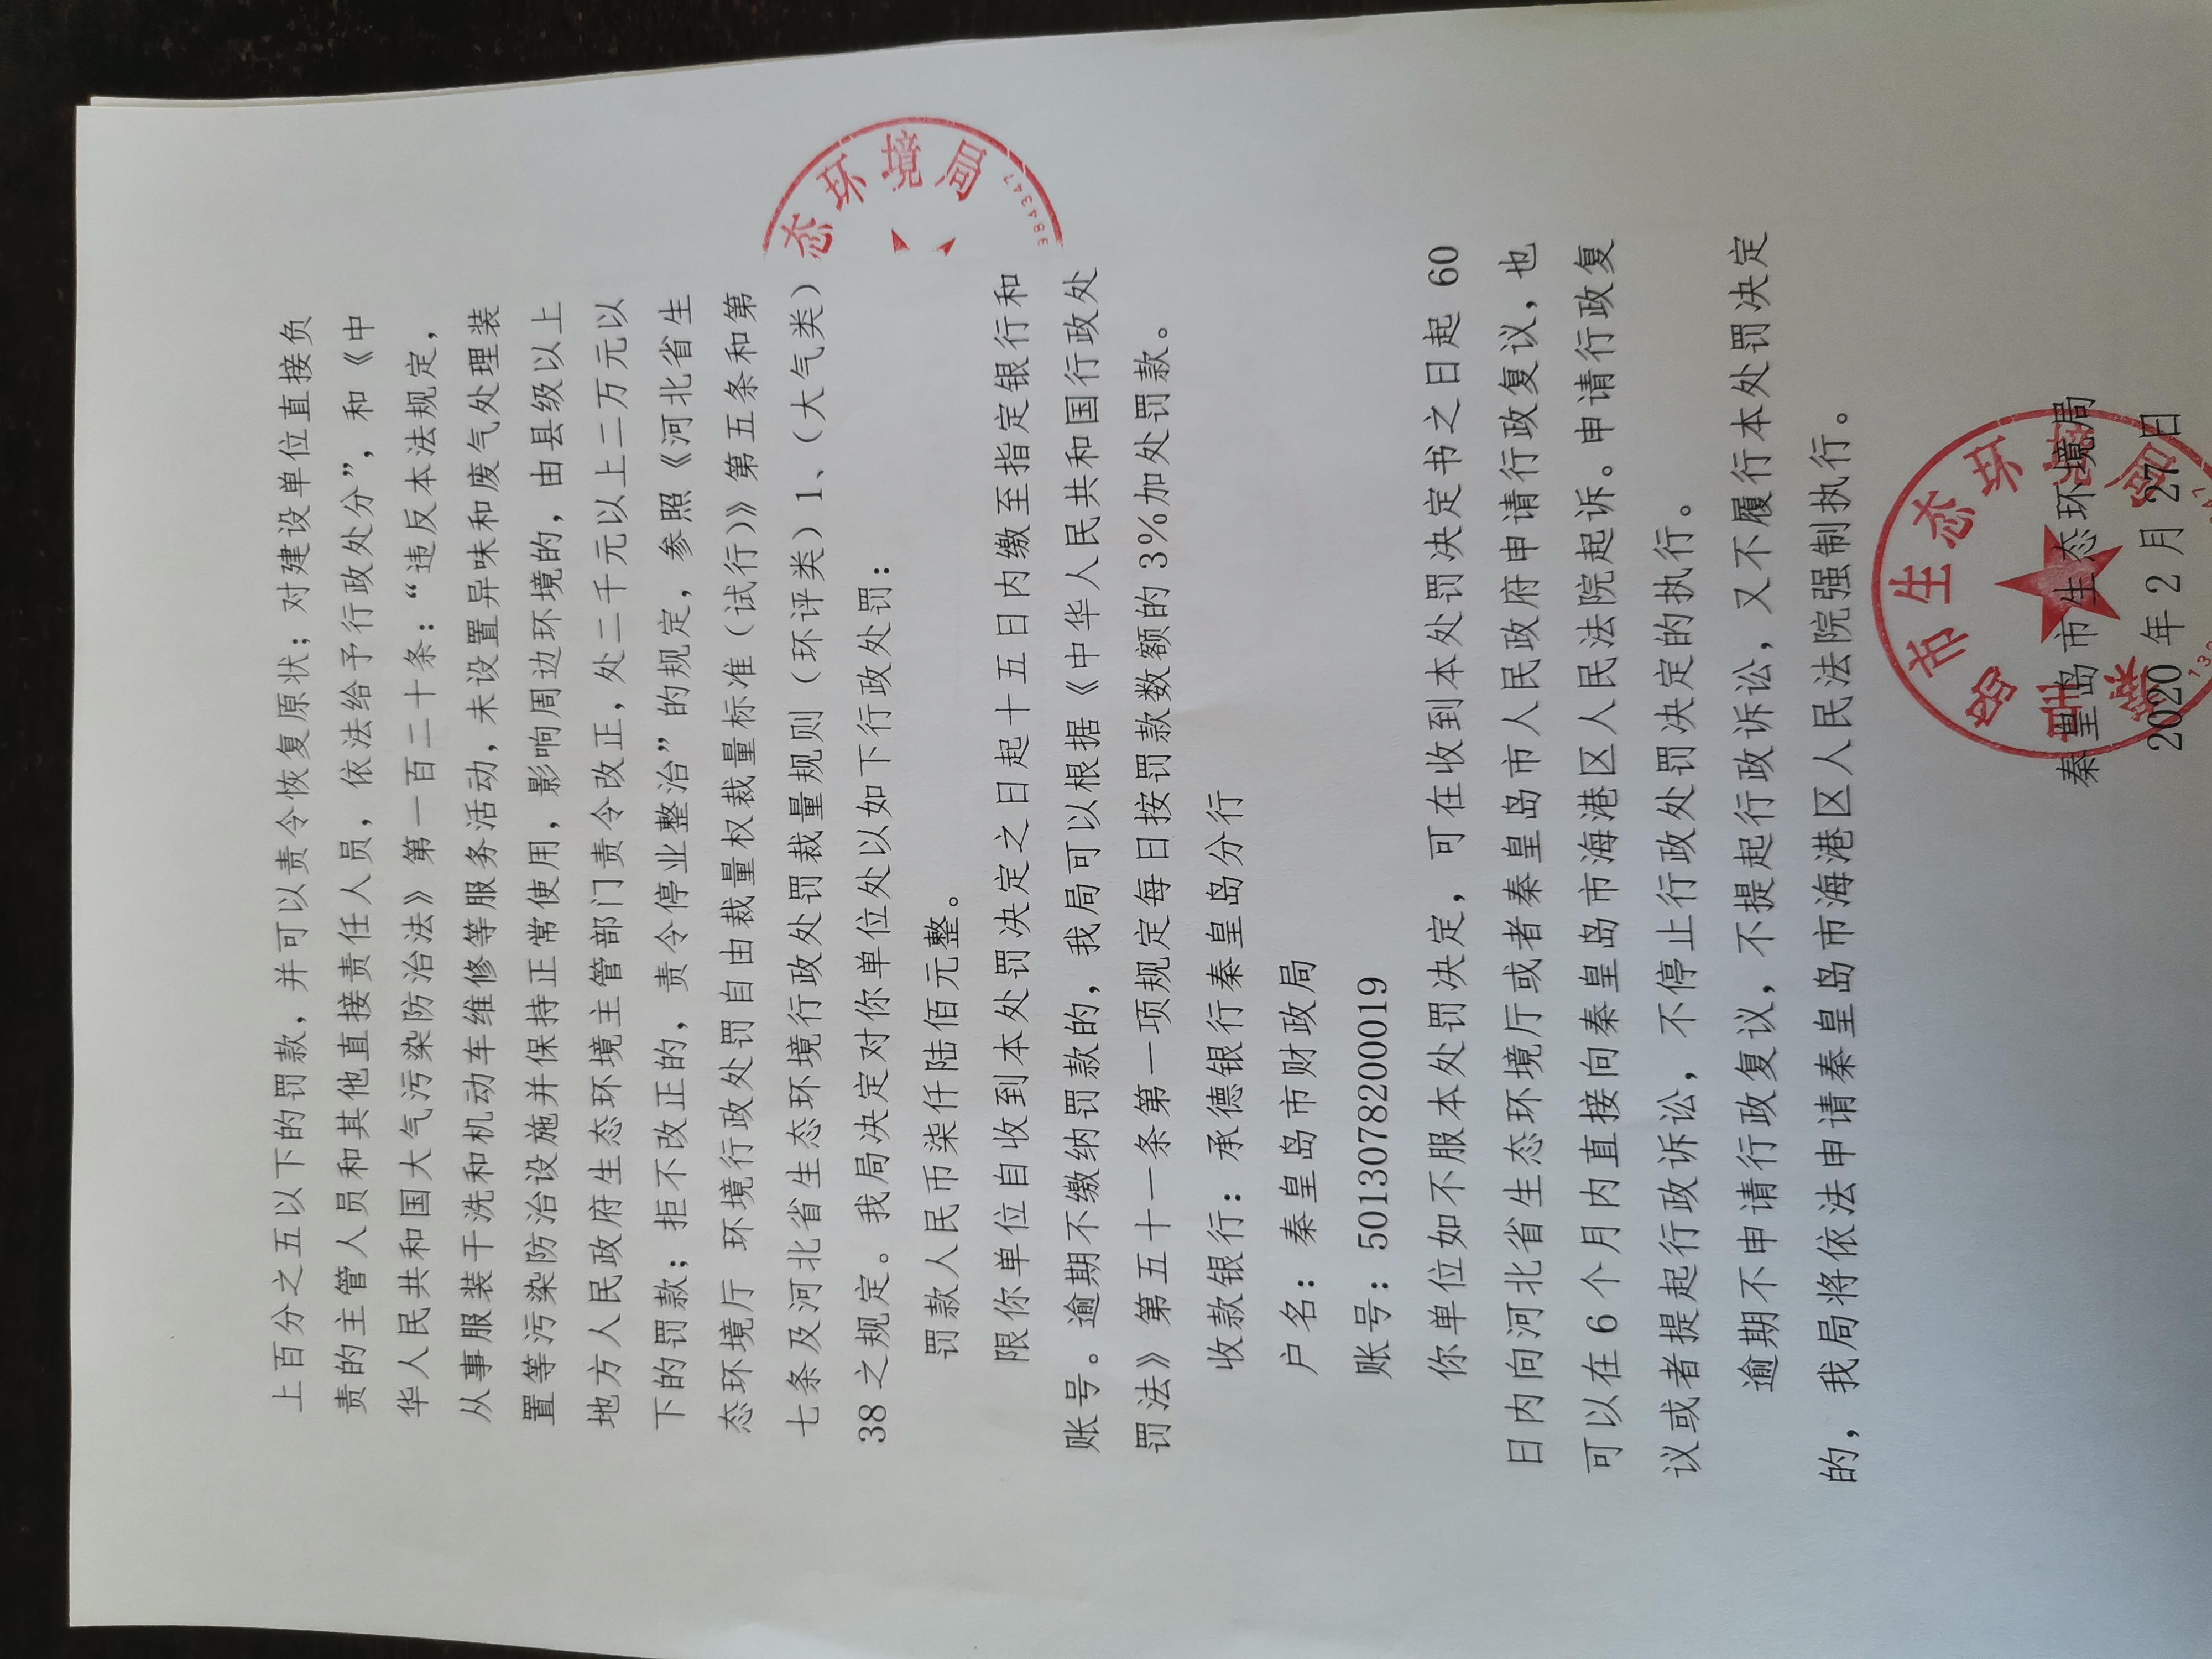 上百分之五以下的罚款，并可以责令恢复原状；对建设单位直接负
责的主管人员和其他直接责任人员，依法给予行政处分”，和《中
华人民共和国大气污染防治法》第一百二十条：“违反本法规定，
从事服装干洗和机动车维修等服务活动，未设置异味和废气处理装
置等污染防治设施并保持正常使用，影响周边环境的，由县级以上
地方人民政府生态环境主管部门责令改正，处二千元以上二万元以
下的罚款；拒不改正的，责令停业整治”的规定，参照《河北省生
态环境厅 环境行政处罚自由裁量权裁量标准（试行）》第五条和第
七条及河北省生态环境行政处罚裁量规则（环评类）1、（大气类）
38 之规定。我局决定对你单位处以如下行政处罚：
罚款人民币柒仟陆佰元整。
限你单位自收到本处罚决定之日起十五日内缴至指定银行和
账号。逾期不缴纳罚款的，我局可以根据《中华人民共和国行政处
罚法》第五十一条第一项规定每日按罚款数额的 3%加处罚款。
收款银行：承德银行秦皇岛分行
户名：秦皇岛市财政局
账号：50130782000019
你单位如不服本处罚决定，可在收到本处罚决定书之日起 60
日内向河北省生态环境厅或者秦皇岛市人民政府申请行政复议，也
可以在 6 个月内直接向秦皇岛市海港区人民法院起诉。申请行政复
议或者提起行政诉讼，不停止行政处罚决定的执行。
逾期不申请行政复议，不提起行政诉讼，又不履行本处罚决定
的，我局将依法申请秦皇岛市海港区人民法院强制执行。
秦皇岛市生态环境局
2020 年 2 月 27 日
态环境局
3884347
秦皇岛市生态环境局